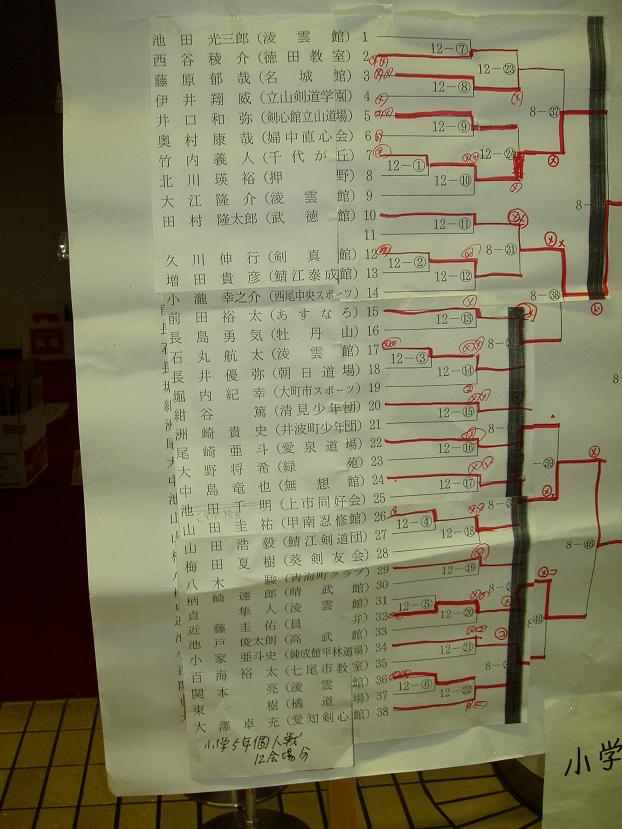 池田光三郎(凌雲館) 1
西谷稜介(徳田教室) 2
藤原郁哉(名城館) 3
伊井翔威(立山剣道学園) 4
井口和弥(剣心館立山道場) 5
奥村康哉(婦中直心会) 6
竹内義人(千代が丘) 7
北川瑛裕(押野) 8
大江隆介(凌雲館) 9
田村隆太郎(武徳館) 10
11
久川伸行(剣真館) 12
増田貴彦(鯖江泰成館) 13
小瀧幸之介(西尾中央スポーツ) 14
前田裕太(あすなろ) 15
長島勇気(牡丹山) 16
石丸航太(凌雲館) 17
長井優弥(朝日道場) 18
堀内紀幸(大町市スポーツ) 19
紺谷篤(清見少年団) 20
洲崎貴史(井波町少年団) 21
尾崎亜斗(愛泉道場) 22
大野将希(緑苑) 23
中島竜也(無想館) 24
池田千明(上市同好会) 25
山田圭祐(甲南忍修館) 26
山田浩毅(鯖江剣道団) 27
梅田夏樹(葵剣友会) 28
八木駿(青海町クラブ) 29
柄崎達郎(晴武館) 30
貞隼人(凌雲館) 31
近藤圭佑(員弁) 32
池戸俊太朗(高武館) 33
小家亜斗史(錬成館平林道場) 34
百海裕太(七尾市教室) 35
関本亮(凌雲館) 36
東樹(橘道場) 37
大澤卓充(愛知剣心館) 38
小学5年個人戦
12会場分
12-①
12-②
12-③
12-④
12-⑤
12-⑥
12-⑦
12-⑧
12-⑨
12-⑩
12-⑪
12-⑫
12-⑬
12-⑭
12-⑮
12-⑯
12-⑰
12-⑱
12-⑲
12-⑳
12-㉑
12-㉒
12-㉓
12-㉔
8-㉛
8-㊲
8-㊳
8-㊻
小学